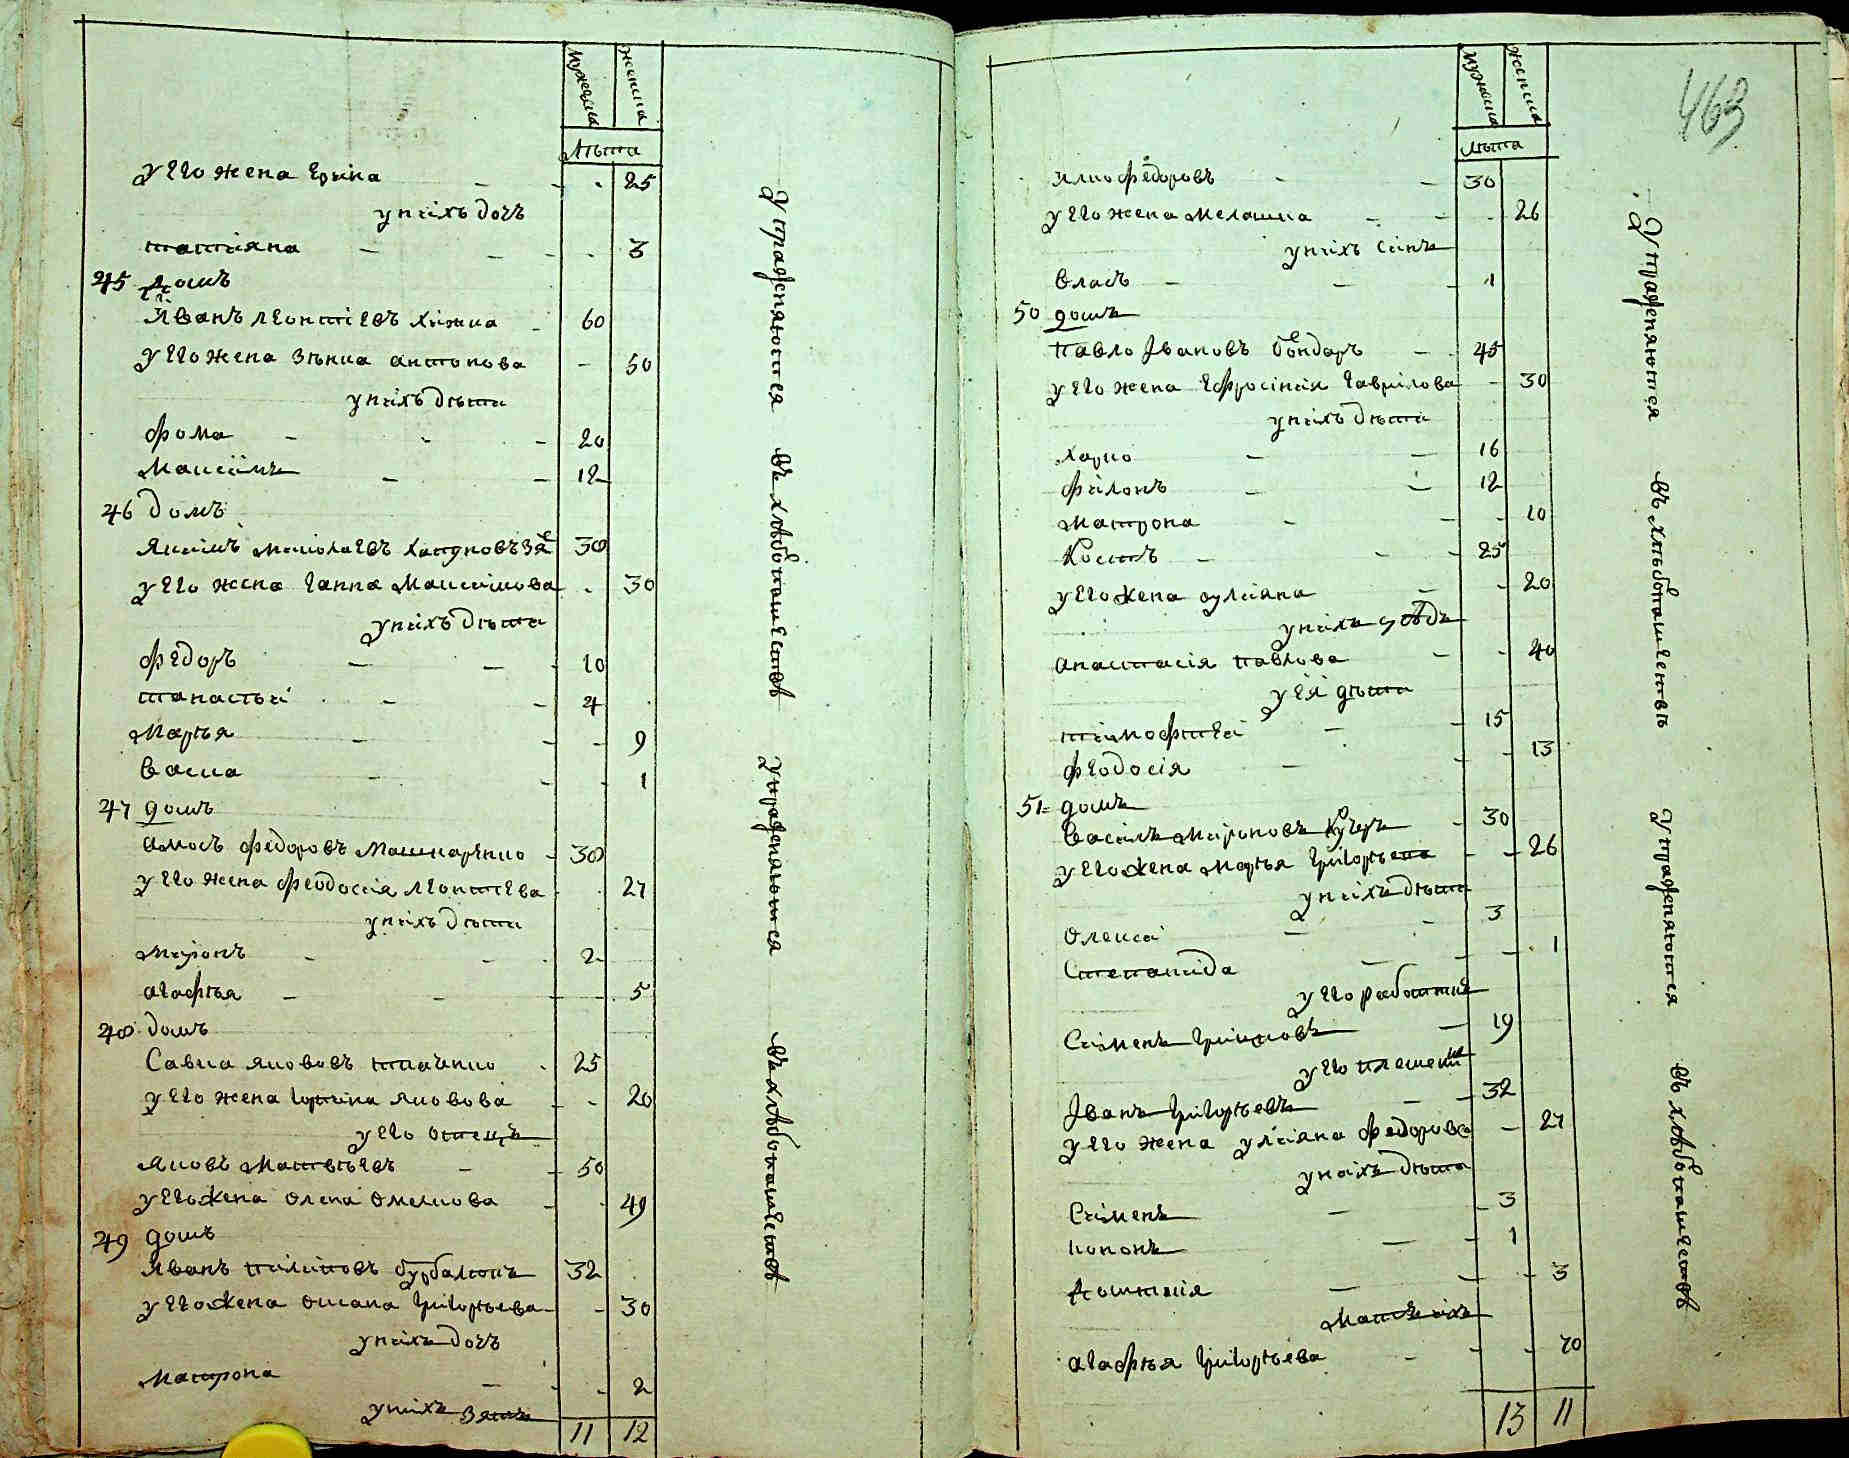 мужеска
женска
лѣта
у его жена Ерина - - - 25
у нихъ дочь
татіяна - - - 3
45 домъ
Иванъ леонтіевъ хижка - 60
у его жена Зѣнка антонова - 50
у нихъ дѣти
фома - - - 20
Максимъ - - 12
46 домъ
Якимъ николаевъ 30
у его жена Ганна Максимова - 30
у нихъ дѣти
федоръ - - - 10
панастѣй - - 4
Марѣя - - - 9
Васка - - - 1
47 домъ
амосъ федоровъ Машкаренко - 30
у его жена феодосія леонтіева - 27
у нихъ дѣти
миронъ - - 2
агафѣя - - - 5
48 домъ
Савка якововъ ткаченко - 25
у его жена іорина яковова - - 20
у его отецъ
яковъ Матвѣевъ - - 50
у его жена олена омелкова - - 49
49 домъ
Иванъ пилиповъ 32
у его жена оксана григорѣева - - 30
у нихъ дочь
Матрона - - - 2
у нихъ зять
11 12
Упражняются въ хлѣбопашествѣ
Упражняются въ хлѣбопашествѣ
463
мужеска
женска
лѣта
илко федоровъ - - 30
у его жена мелашка - - - 26
у нихъ синъ
власъ - - - 1
50 домъ
павло Івановъ бондаръ - - 45
у его жена ефросінія гаврілова - 30
у нихъ дѣти
харко - - 16
филонъ - - 12
матрона - - - 10
Костъ - - - 25
у его жена оуліяна - - 20
у нихъ
анастасія павлова - - 40
у ея дѣти
тимофѣей - - 15
феодосія - - - 13
51 домъ
Василъ мироновъ Кучеръ - 30
у его жена марѣя григорѣева - - 26
у нихъ дѣти
олексѣй - - 3
Степанида - - - 1
у его работникъ
Сименъ - 19
у его племеникъ
Іванъ григорѣевъ - - 32
у его жена уліяна федорова - 27
у нихъ дѣти
Сименъ - - 3
кононъ - - 1
домникія - - - 3
Мать ихъ
агафѣя григорѣева - - - 70
13 11
Упражняются въ хлѣбопашествѣ
Упражняются въ хлѣбопашествѣ